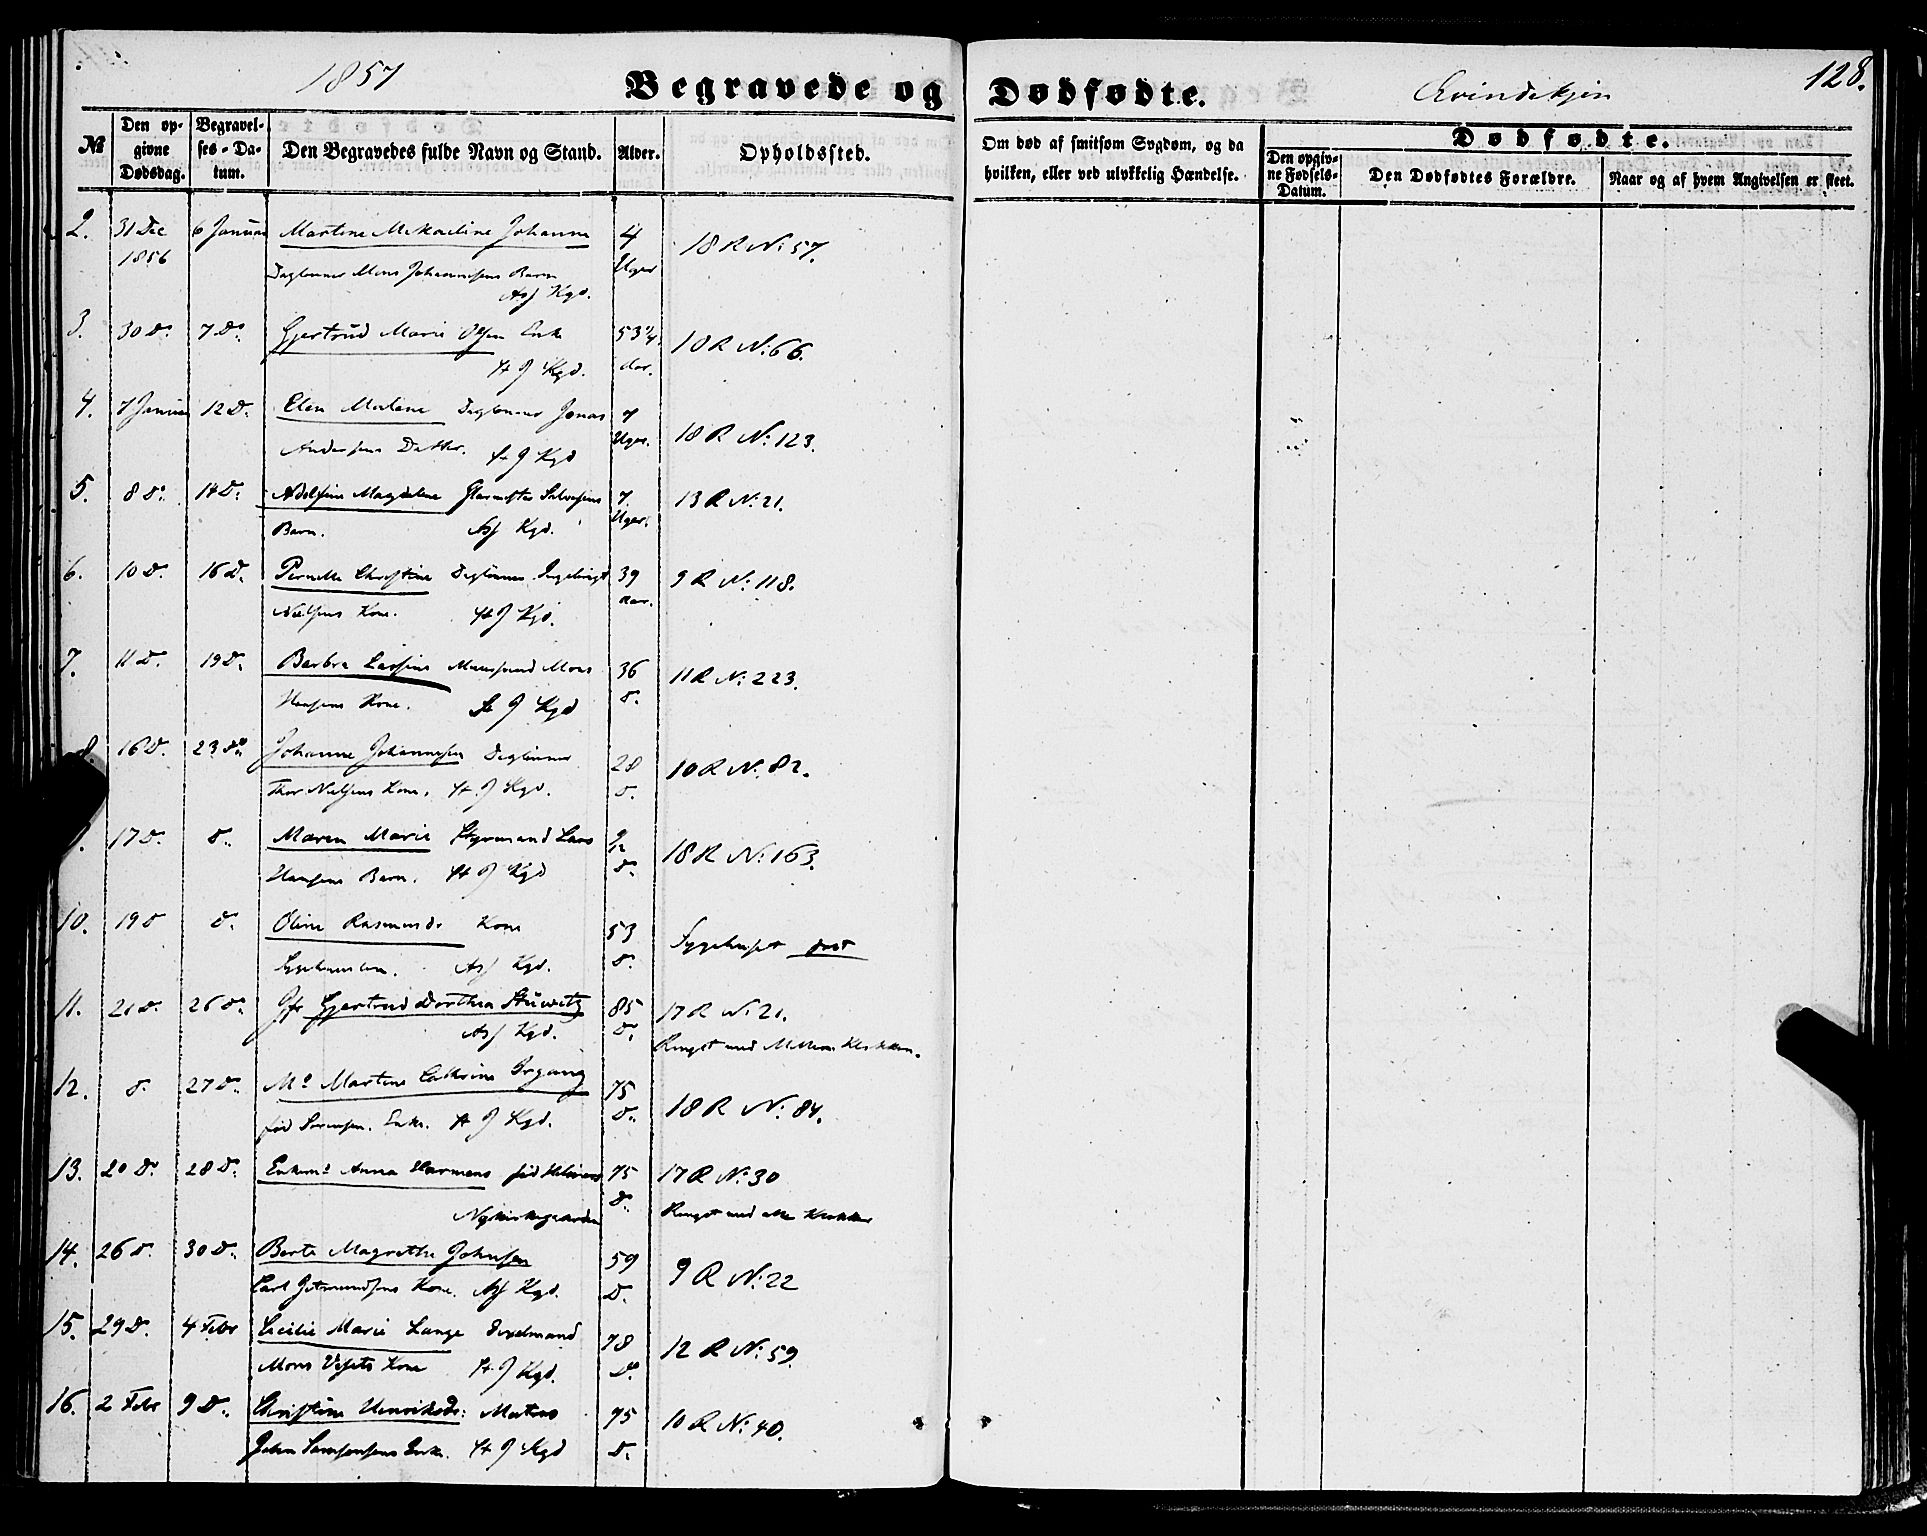 1857
Begravede og
Dødfødte.
Qvindekjøn
128.
№
Den op-
givne
Dødsdag.
Begravel-
ses-Da-
tum.
Den Begravedes fulde Navn og Stand.
Alder.
Opholdssted.
Om død af smitsom Sygdom, og da
hvilken, eller ved ulykkelig Hændelse.
Dødfødte.
Den opgiv-
ne Fødsels-
Datum.
Den Dødfødtes Forældre.
Naar og af hvem Angivelsen er skeet.
2. 31 Dec 6 Januar Martine Mikaeline Johanne 4 18 R N: 57.
1856 Daglønner Mons Johannesens Barn Uger
Ass Kgd.
3. 30 D: 7 D: Gjertrud Marie Olsen Enke 53 1/4 10 R N: 66.
St J Kgd. Aar.
4. 7 Januar 12 D. Elen Malene Daglønner Jonas 7 18 R N: 123.
Andersens Datter. St J Kgd Uger.
5. 8 D: 14 D. Adolfine Magdalene Glarmester 7 13 R N: 21.
Barn. Ass Kgd. Uger.
6. 10 D. 16 D. Pernille Christine Daglønner Ingebrigt 39 9 R N: 118.
Nielsens Kone. St J Kgd. Aar.
7. 11 D. 19 D. Barbra Mons 36 11 R N: 223.
Hansens Kone. St J Kgd D.
8. 16 D. 23 D: Johanne Johannesen Daglønner 28 10 R N: 82.
Thor Nielsens Kone. St J Kgd. D.
17 D. D. Maren Marie Styrmand Lars 18 R N: 163.
Hansens Barn. St J Kgd D.
10. 19 D D. Oline Rasmusd: Kone 53 Sygehuset
Ass Kgd. D.
11. 21 D. 26 D: Jfr Gjertrud Dorthea Stuwitz 85 17 R N: 21.
Ass Kgd. D. Ringet med Mellem Klokken.
12. D. 27 D. Md Martine Cathrine Irgang 75 18 R N: 84.
fød Sørensen. Enke. St J Kgd. D.
13. 20 D. 28 D. Anna Harmens fød 75 17 R N: 30
Nykirkegaarden D. Ringet med alle Klokker
14. 26 D. 30 D. Berte Magrethe Johnsen 59 9 R N: 22
Carl Kone. Ass Kgd. D.
15. 29 D. 4 Febr Cecilie Marie Lange 78 12 R N: 59.
Mons Kone St. J Kgd. D.
16. 2 Febr 9 D. Christine Henriksd: 75 10 R N: 40.
John Enke. St J Kgd D.